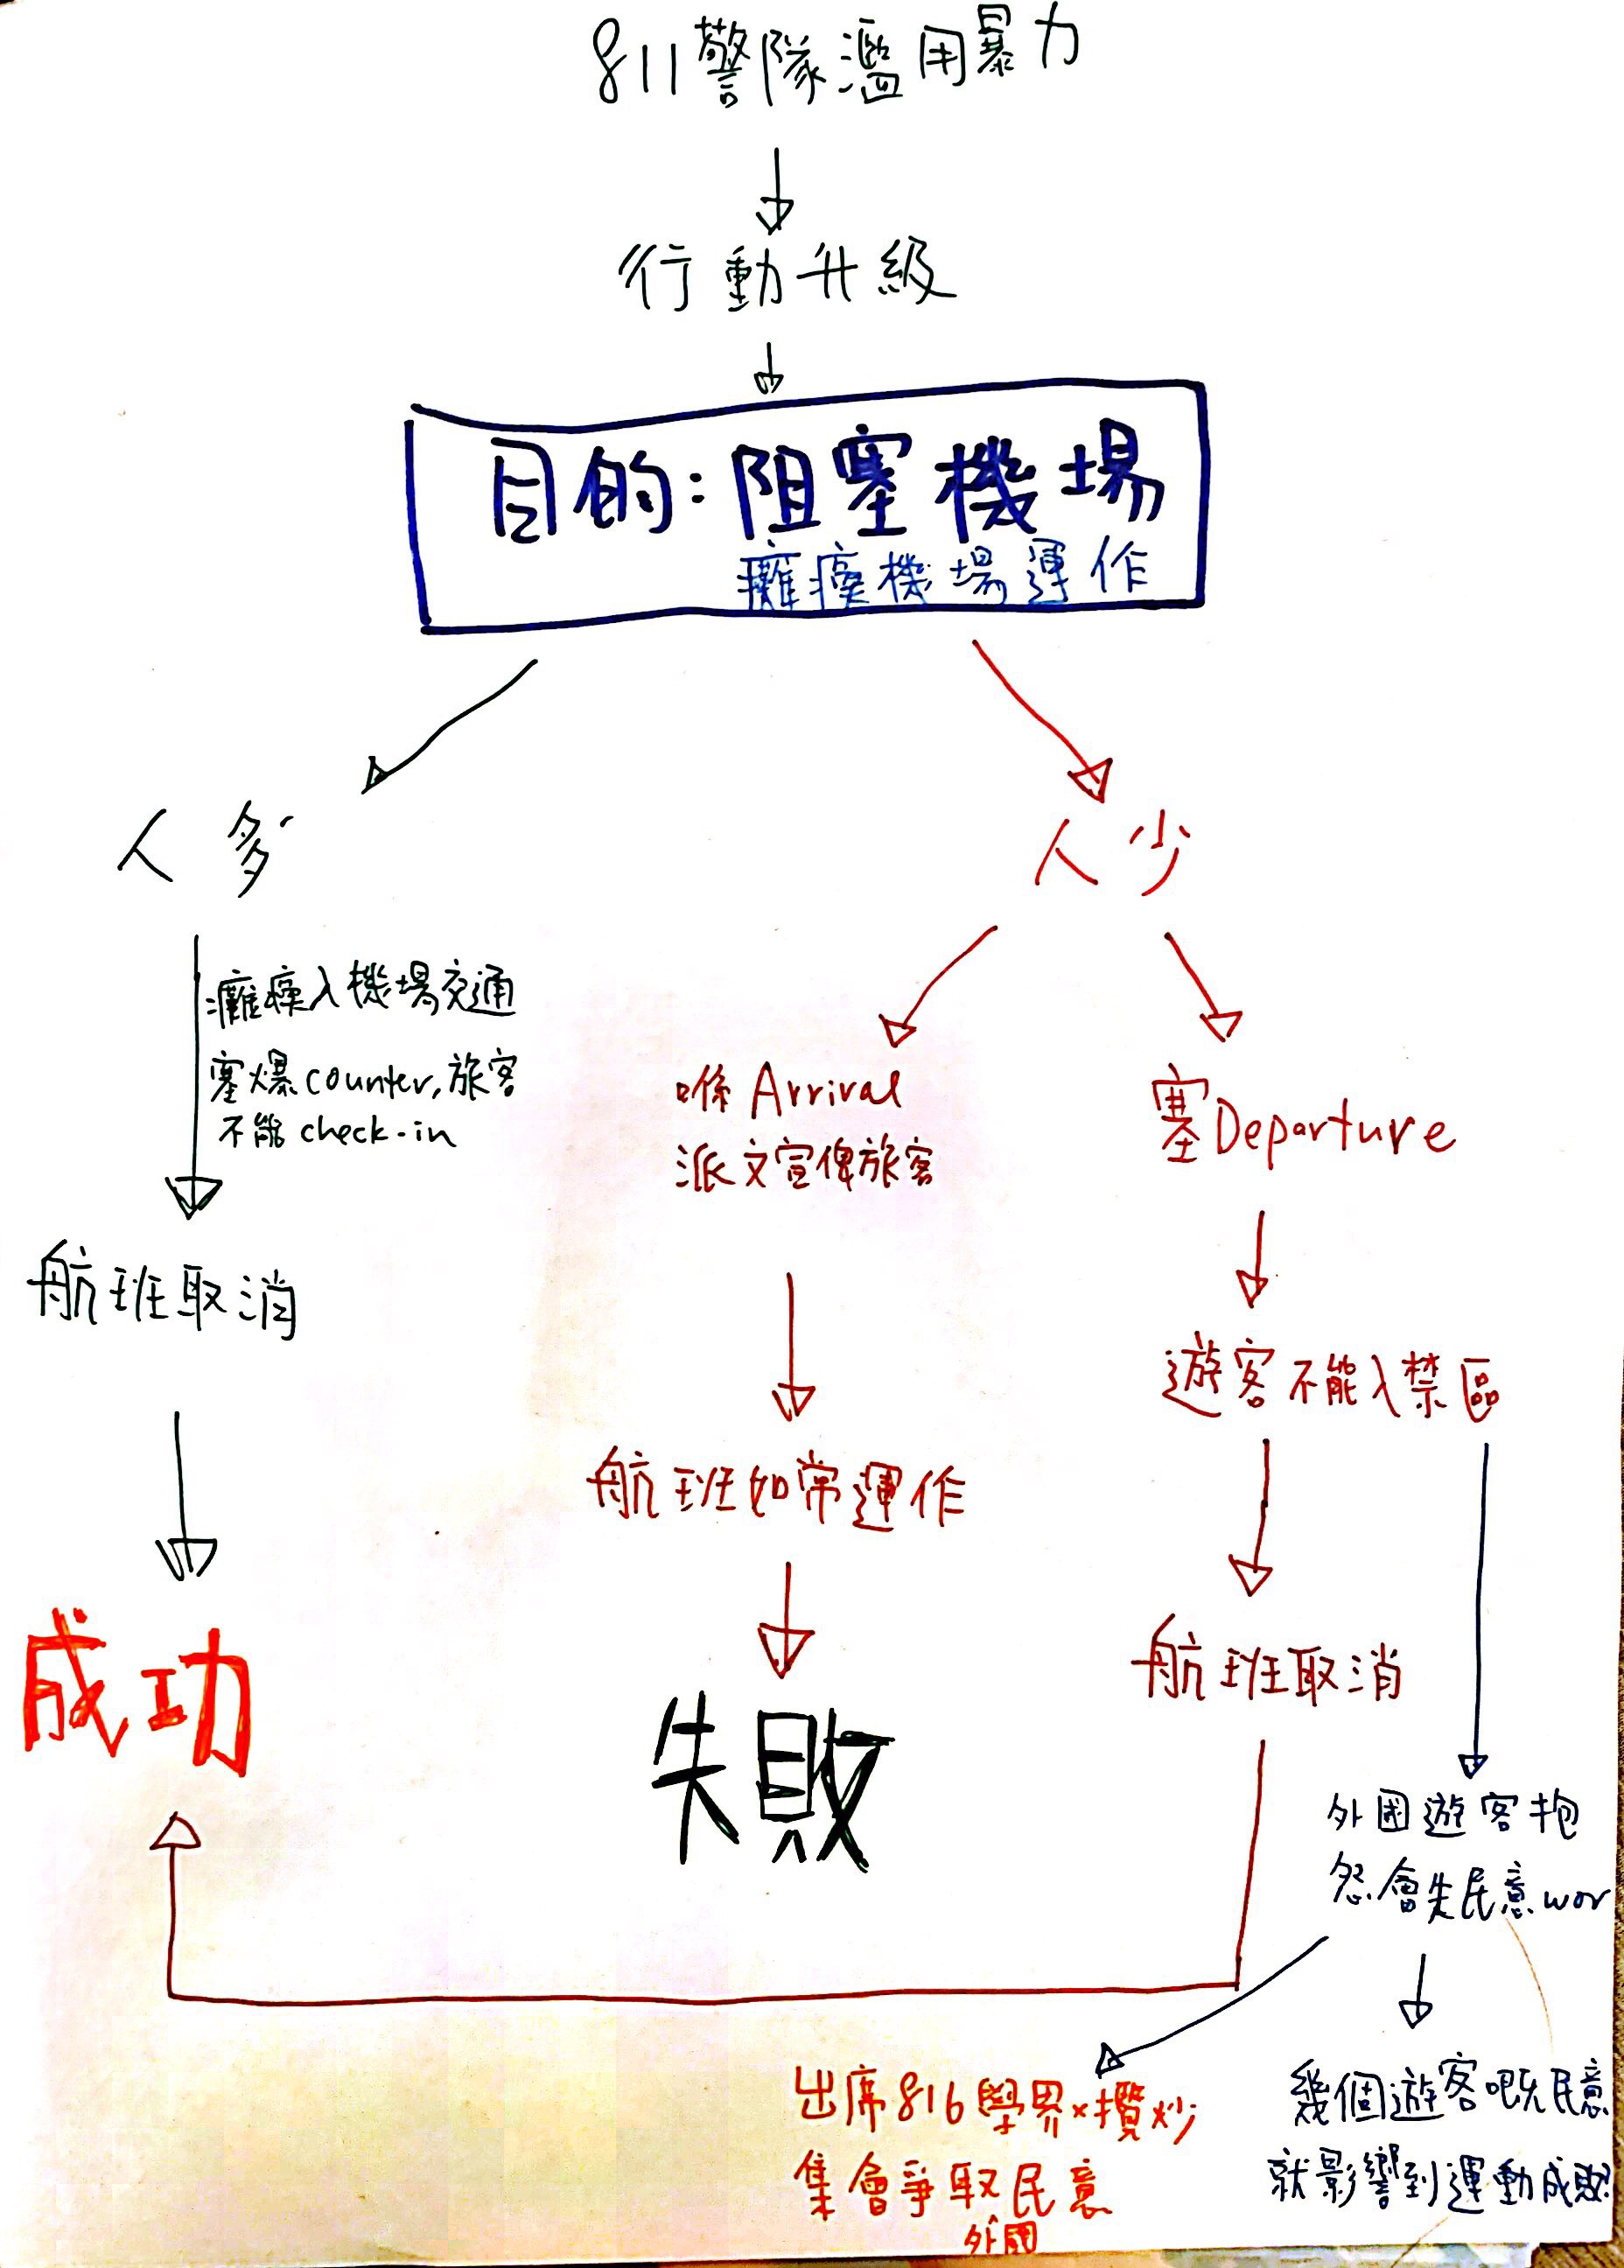 811警隊濫用暴力
行動升級
目的:阻塞機場
癱瘓機場運作
人多
人少
癱瘓入機場交通
塞爆counter,旅客
不能check-in
航班取消
成功
喺Arrival
派文宣俾旅客
航班如常運作
失敗
塞Departure
遊客不能入禁區
航班取消
外國遊客抱
怨會失民意wor
出席816學界×攬炒
集會爭取民意
外國
幾個遊客嘅民意
就影響到運動成敗?